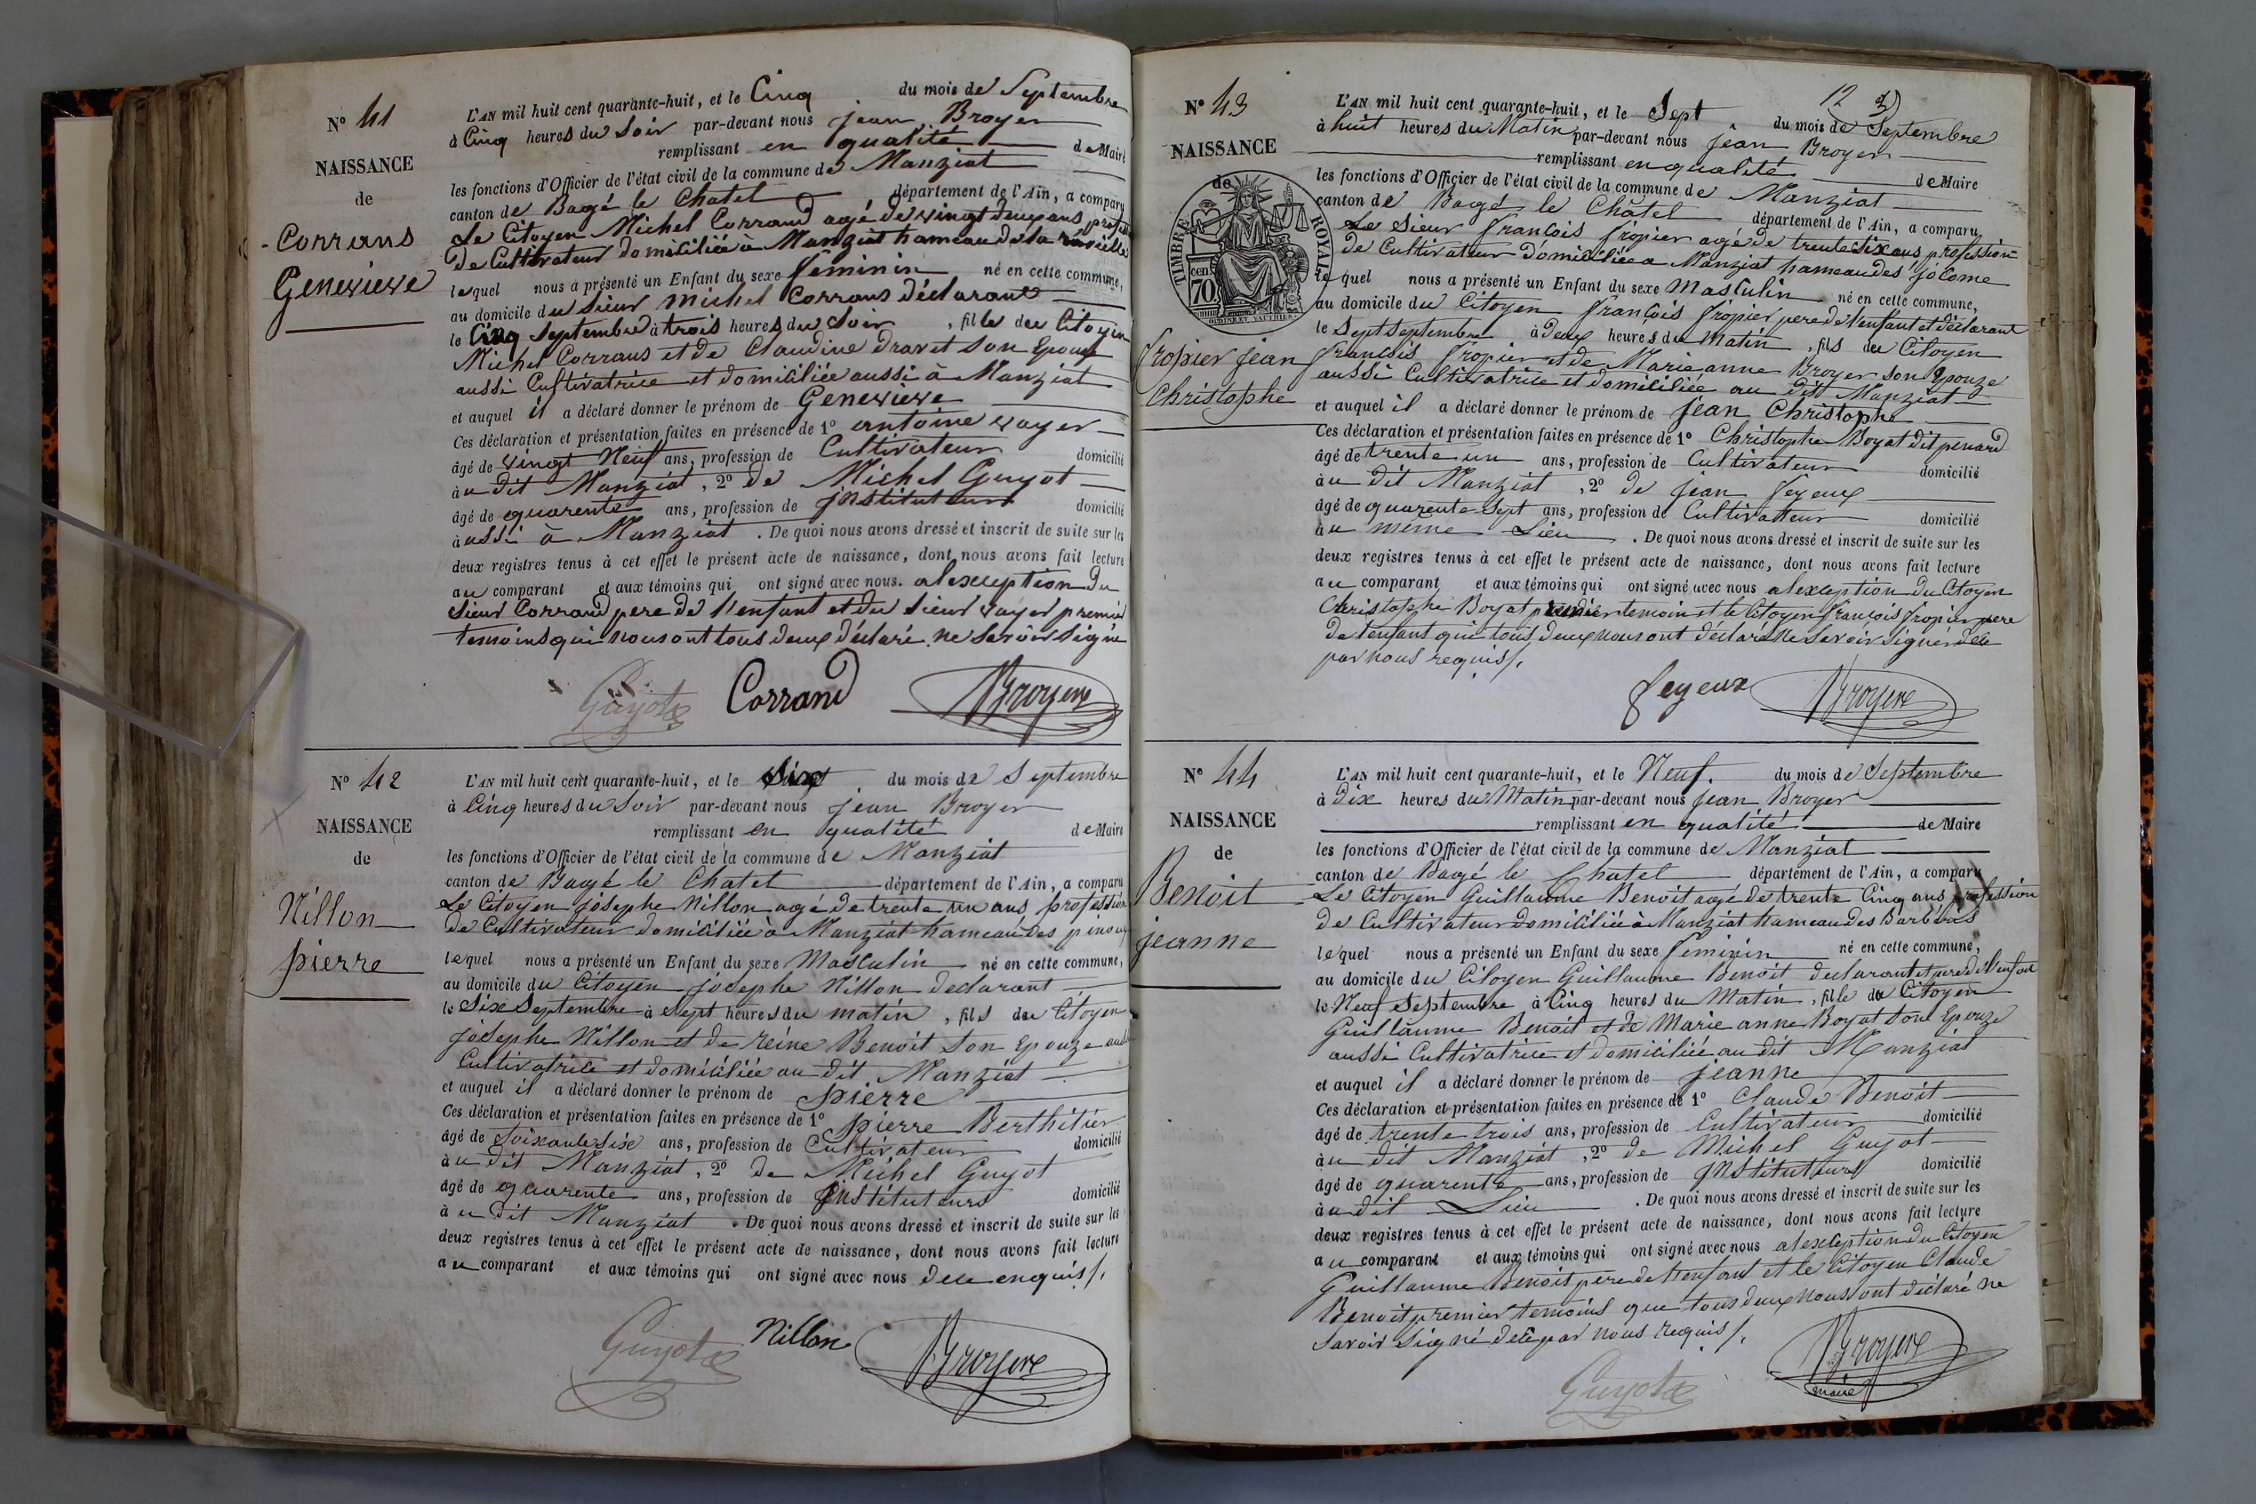 N° 41
NAISSANCE
de
Corrans
Genevieve
L'AN mil huit cent quarante-huit, et le Cinq du mois de Septembre
à Cinq heures du Soir par-devant nous jean Broyer
remplissant en qualité de Maire
les fonctions d'Officier de l'état civil de la commune de Manziat
canton de Bagé le Chatel département de l'Ain, a comparu
Le Citoyen Michel Corrand agé de vingt deux ans profession
de Cultivateur domiciliée à Manziat hameau de la
lequel nous a présenté un Enfant du sexe feminin né en cette commune,
au domicile du Sieur Michel Corrans déclarant
le Cinq Septembre à trois heures du Soir, fille du Citoyen
Michel Corrans et de Claudine dravet son Epouse
aussi Cultivatrice et domiciliée aussi à Manziat
et auquel il a déclaré donner le prénom de Genevieve
Ces déclaration et présentation faites en présence de 1° antoine vayer
âgé de vingt Neuf ans, profession de Cultivateur domicilié
àu dit Manziat, 2° de Michel Guyot
âgé de quarente ans, profession de jnstituteur domicilié
àussi à Manziat. De quoi nous avons dressé et inscrit de suite sur les
deux registres tenus à cet effet le présent acte de naissance, dont nous avons fait lecture
au comparant et aux témoins qui ont signé avec nous. alexception du
Sieur Corrand pere de l'enfant et du sieur vayer premier
temoins qui nous ont tous deux déclaré ne savoir signé
Guyot Corrand Broyer
N° 42
NAISSANCE
de
Nillon
pierre
L'AN mil huit cent quarante-huit, et le Six du mois de Septembre
à Cinq heures du Soir par-devant nous jean Broyer
remplissant en qualité de Maire
les fonctions d'Officier de l'état civil de la commune de Manziat
canton de Bagé le Chatel département de l'Ain, a comparu
Le Citoyen josephe Nillon agé de trente un ans profession
de Cultivateur domiciliée à Manziat hameau des pinoux
lequel nous a présenté un Enfant du sexe Masculin né en cette commune,
au domicile du Citoyen josephe Nillon declarant
le Six Septembre à Sept heures du matin, fils du Citoyen
josephe Nillon et de reine Benoit son Epouze aussi
Cultivatrice et domiciliée au dit Manziat
et auquel il a déclaré donner le prénom de pierre
Ces déclaration et présentation faites en présence de 1° pierre Berthilier
âgé de Soixante Six ans, profession de Cultivateur domicilié
àu dit Manziat, 2° de Michel Guyot
âgé de quarente ans, profession de jnstituteurs domicilié
àu dit Manziat. De quoi nous avons dressé et inscrit de suite sur les
deux registres tenus à cet effet le présent acte de naissance, dont nous avons fait lecture
au comparant et aux témoins qui ont signé avec nous dece enquis/.
Guyot Nillon Broyer
12
N° 43
NAISSANCE
de
TIMBRE ROYAL
70 cen
fropier jean
Christophe
L'AN mil huit cent quarante-huit, et le Sept du mois de Septembre
à huit heures du Matin par-devant nous jean Broyer
remplissant en qualité de Maire
les fonctions d'Officier de l'état civil de la commune de Manziat
canton de Bagé le Châtel département de l'Ain, a comparu
Le Sieur francois fropier agé de trente six ans profession
de Cultivateur domiciliée a Manziat hameau des jolome
lequel nous a présenté un Enfant du sexe Masculin né en cette commune,
au domicile du Citoyen françois fropier pere de l'enfant et déclarant
le Sept Septembre à deux heures du Matin, fils du Citoyen
francois fropier et de Marie anne Broyer son Epouze
aussi Cultivatrice et domiciliée au dit Manziat
et auquel il a déclaré donner le prénom de jean Christophe
Ces déclaration et présentation faites en présence de 1° Christophe Boyat dit penard
âgé de trente un ans, profession de Cultivateur domicilié
àu dit Manziat, 2° de jean feyeux
âgé de quarente Sept ans, profession de Cultivatteur domicilié
àu même Lieu. De quoi nous avons dressé et inscrit de suite sur les
deux registres tenus à cet effet le présent acte de naissance, dont nous avons fait lecture
au comparant et aux témoins qui ont signé avec nous alexception du Citoyen
Christophe Boyat premier temoin et le Citoyen françois fropier pere
de lenfant qui tous deux nous ont déclaré ne savoir signer dece
par nous requis/.
feyeux Broyer
N° 44
NAISSANCE
de
Benoit
jeanne
L'AN mil huit cent quarante-huit, et le Neuf. du mois de Septembre
à Dix heures du Matin par-devant nous jean Broyer
remplissant en qualité de Maire
les fonctions d'Officier de l'état civil de la commune de Manziat
canton de Bagé le Chatel département de l'Ain, a comparu
Le Citoyen Guillaume Benoit agé de trente Cinq ans profession
de Cultivateur domiciliée à Manziat hameau des Barberis
lequel nous a présenté un Enfant du sexe feminin né en cette commune,
au domicile du Citoyen Guillaume Benoit declarant et pere de l'enfant
le Neuf Septembre à Cinq heures du Matin, fille du Citoyen
Guillaume Benoit et de Marie anne Boyat Son Epouze
aussi Cultivatrice et domiciliée au dit Manziat
et auquel il a déclaré donner le prénom de jeanne
Ces déclaration et présentation faites en présence de 1° Claude Benoit
âgé de trente trois ans, profession de Cultivateur domicilié
àu dit Manziat, 2° de Michel Guyot
âgé de quarente ans, profession de jnstituteurs domicilié
àu dit Lieu. De quoi nous avons dressé et inscrit de suite sur les
deux registres tenus à cet effet le présent acte de naissance, dont nous avons fait lecture
au comparant et aux témoins qui ont signé avec nous alexception du Citoyen
Guillaume Benoit pere de l'enfant et le Citoyen Claude
Benoit premier temoins que tous deux nous ont déclaré ne
Savoir Signé dece par nous requis/.
Guyot Broyer
maire